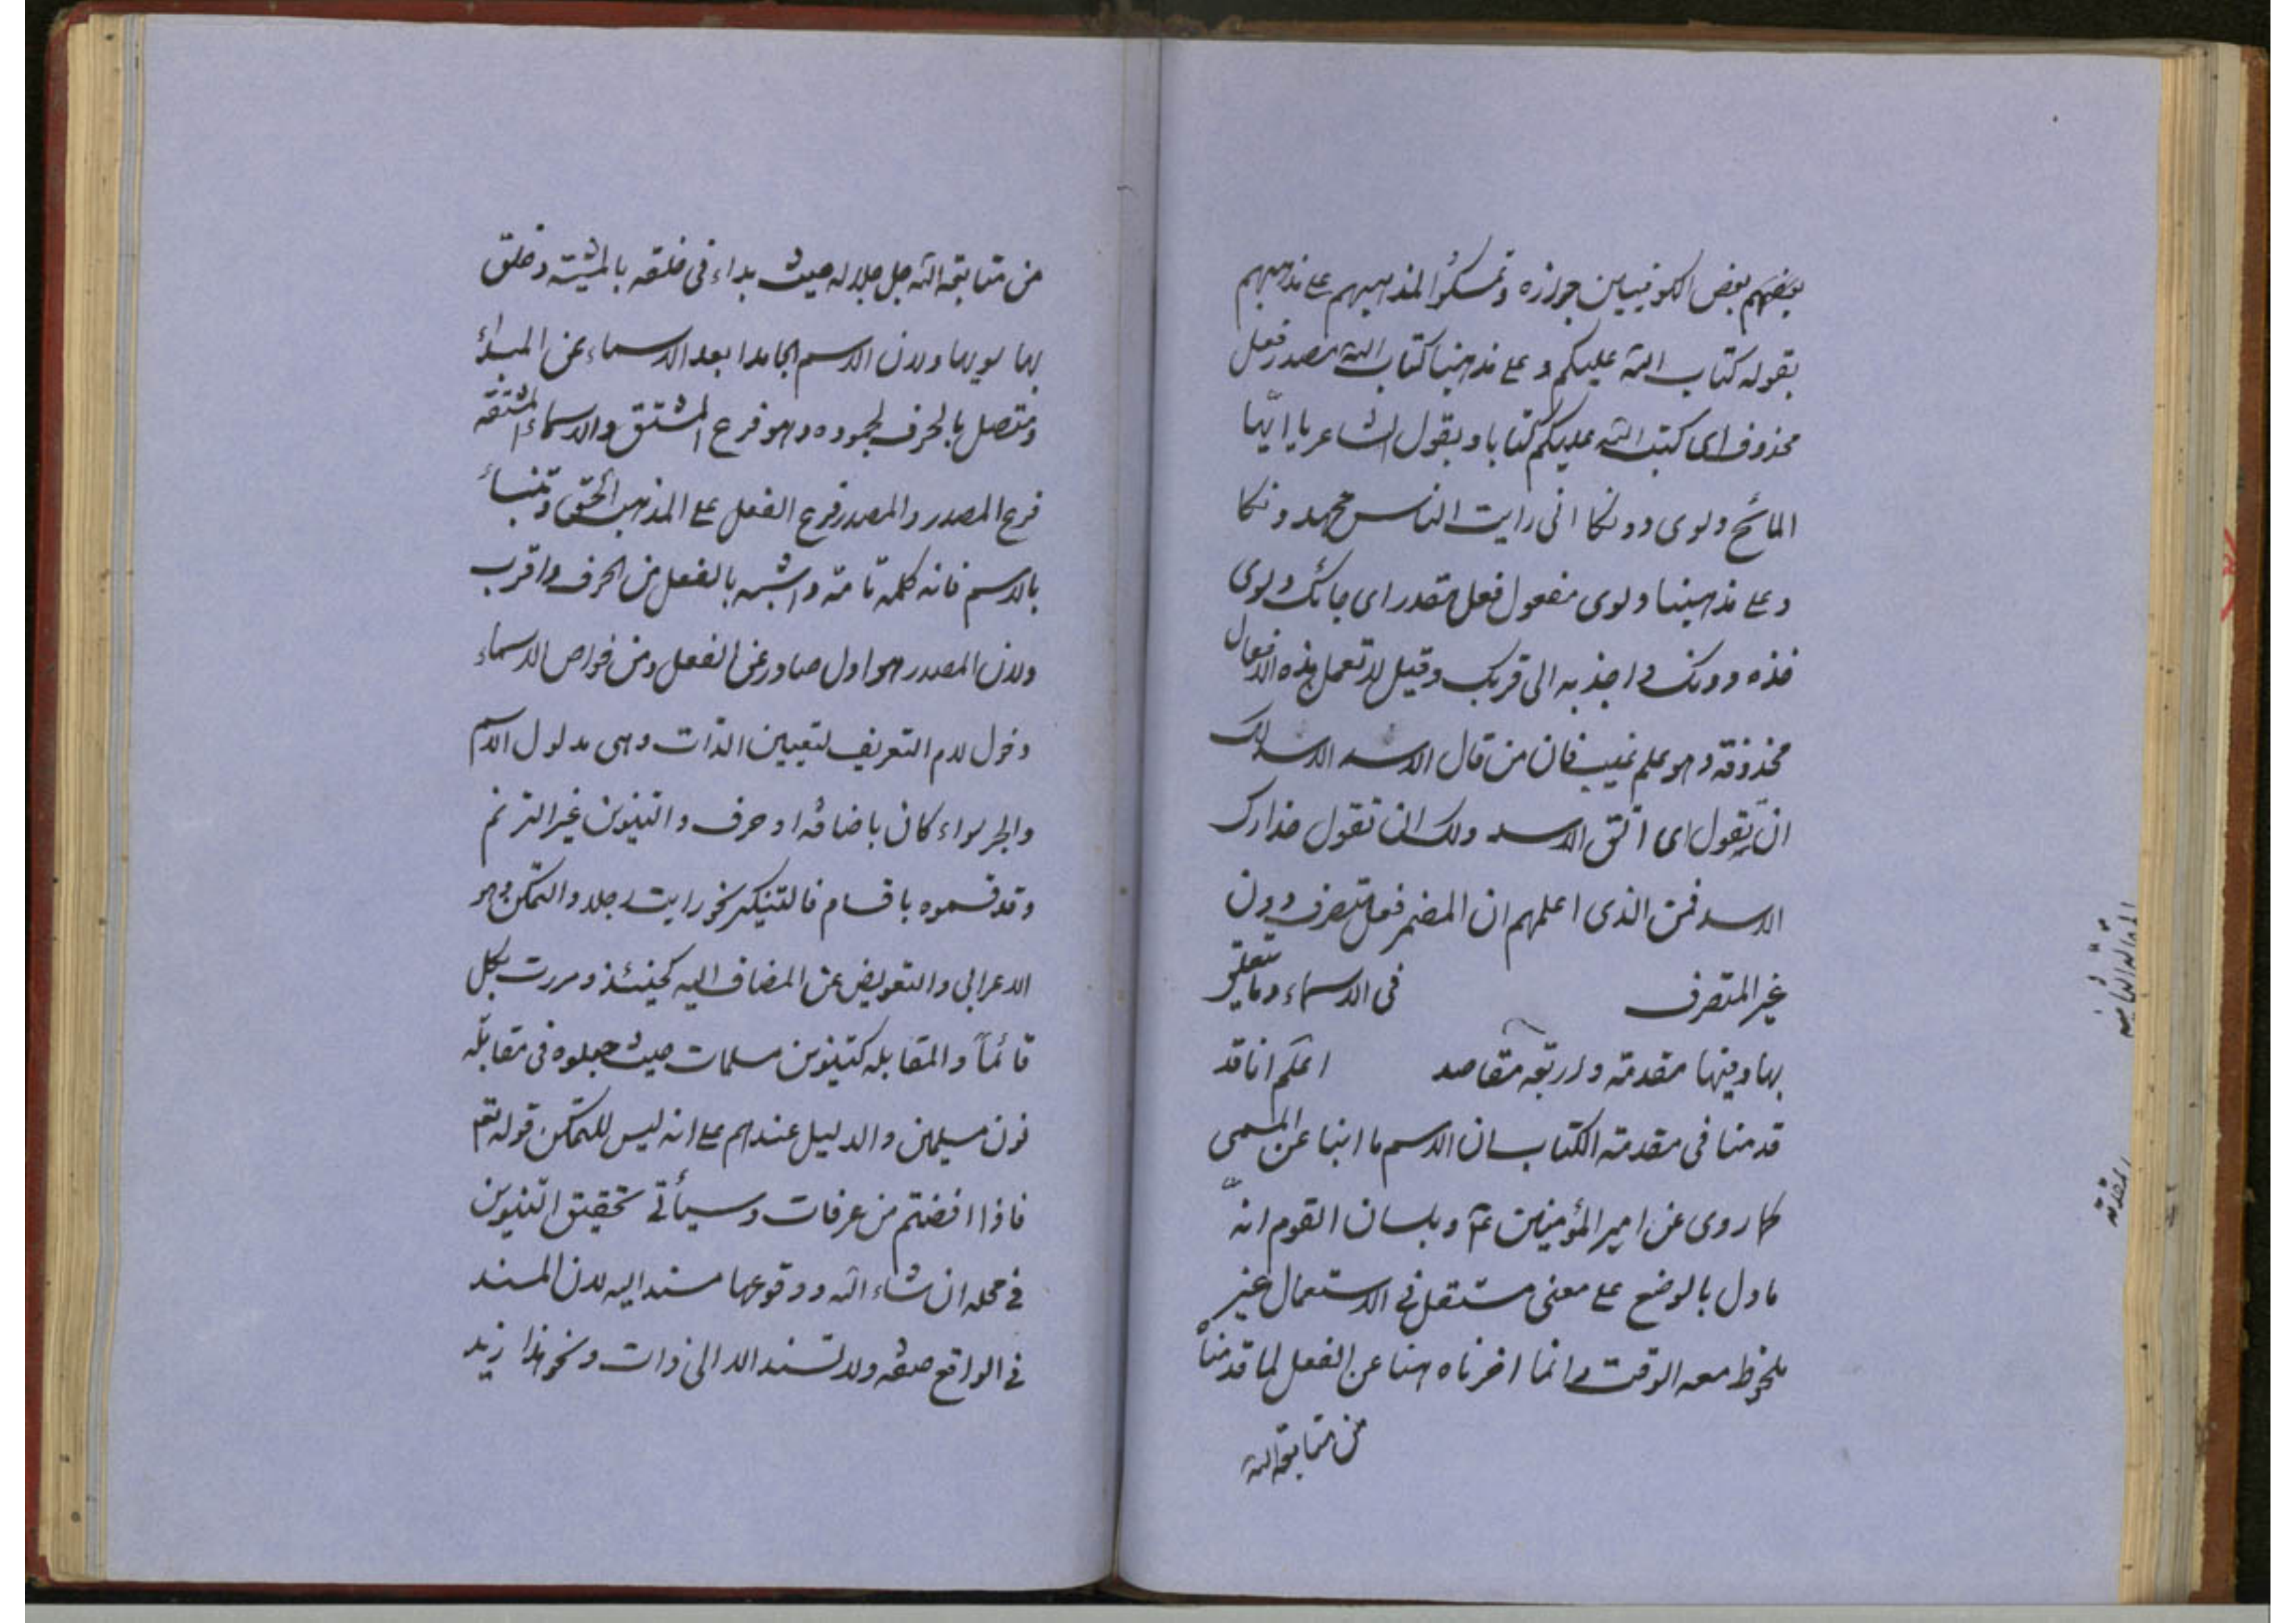 بعضهم بعض الكوفيين جوازه وتمسكوا لمذهبهم على مذهبهم
بقوله كتاب الله عليكم وعلى مذهبنا كتاب الله مصدر فعل
محذوف اى كتب الله عليكم كتابا وبقول الشاعر يا ايها
المائح دلوى دونكا انى رايت الناس يحمدونكا
وعلى مذهبنا دلوى مفعول فعل مقدر اى جائك دلوى
فخذه دونك واجذبه الى قربك وقيل لا تعمل هذه الافعال
محذوفة وهو علم غيب فان من قال الاسد الاسد لك
ان تقول اى اتق الاسد ولك ان تقول حذارك
الاسد فمن الذى اعلمهم ان المضمر فعل متصرف دون
غير المتصرف في الاسماء وما يتعلق
بها وفيها مقدمة واربعة مقاصد اعلم انا قد
قدمنا في مقدمة الكتاب ان الاسم ما انبا عن المسمى
كما روى عن امير المؤمنين عم وبلسان القوم انه
ما دل بالوضع على معنى مستقل في الاستعمال غير
ملحوظ معه الوقت وانما اخرناه هنا عن الفعل لما قدمنا
من متابعة الله
المقالة الثانية في
المقدمة
من متابعة الله جل جلاله حيث بداء في خلقه بالمشية وخلق
بها سويها ولان الاسم الجامد ابعد الاسماء عن المبدأ
ومتصل بالحرف لجموده وهو فرع المشتق والاسماء المشتقة
فرع المصدر والمصدر فرع الفعل على المذهب الحق وتنبأ
بالاسم فانه كلمة تامة واشبه بالفعل من الحرف واقرب
ولان المصدر هو اول صادر عن الفعل ومن خواص الاسماء
دخول لام التعريف لتعيين الذات وهى مدلول الاسم
والجر سواء كان باضافة او حرف والتنوين غير الترنم
وقد قسموه باقسام فالتنكير نحو رايت رجلا والتمكن وهو
الاعرابى والتعويض عن المضاف اليه كحينئذ ومررت بكل
قائماً والمقابلة كتنوين مسلمات حيث جعلوه في مقابلة
نون مسلمين والدليل عندهم على انه ليس للتمكن قوله تعم
فاذا افضتم من عرفات وسيأتى تحقيق التنوين
في محله ان شاء الله ووقوعها مسندا اليه لان المسند
في الواقع صفة ولا تسند الا الى ذات ونحو هذا زيد